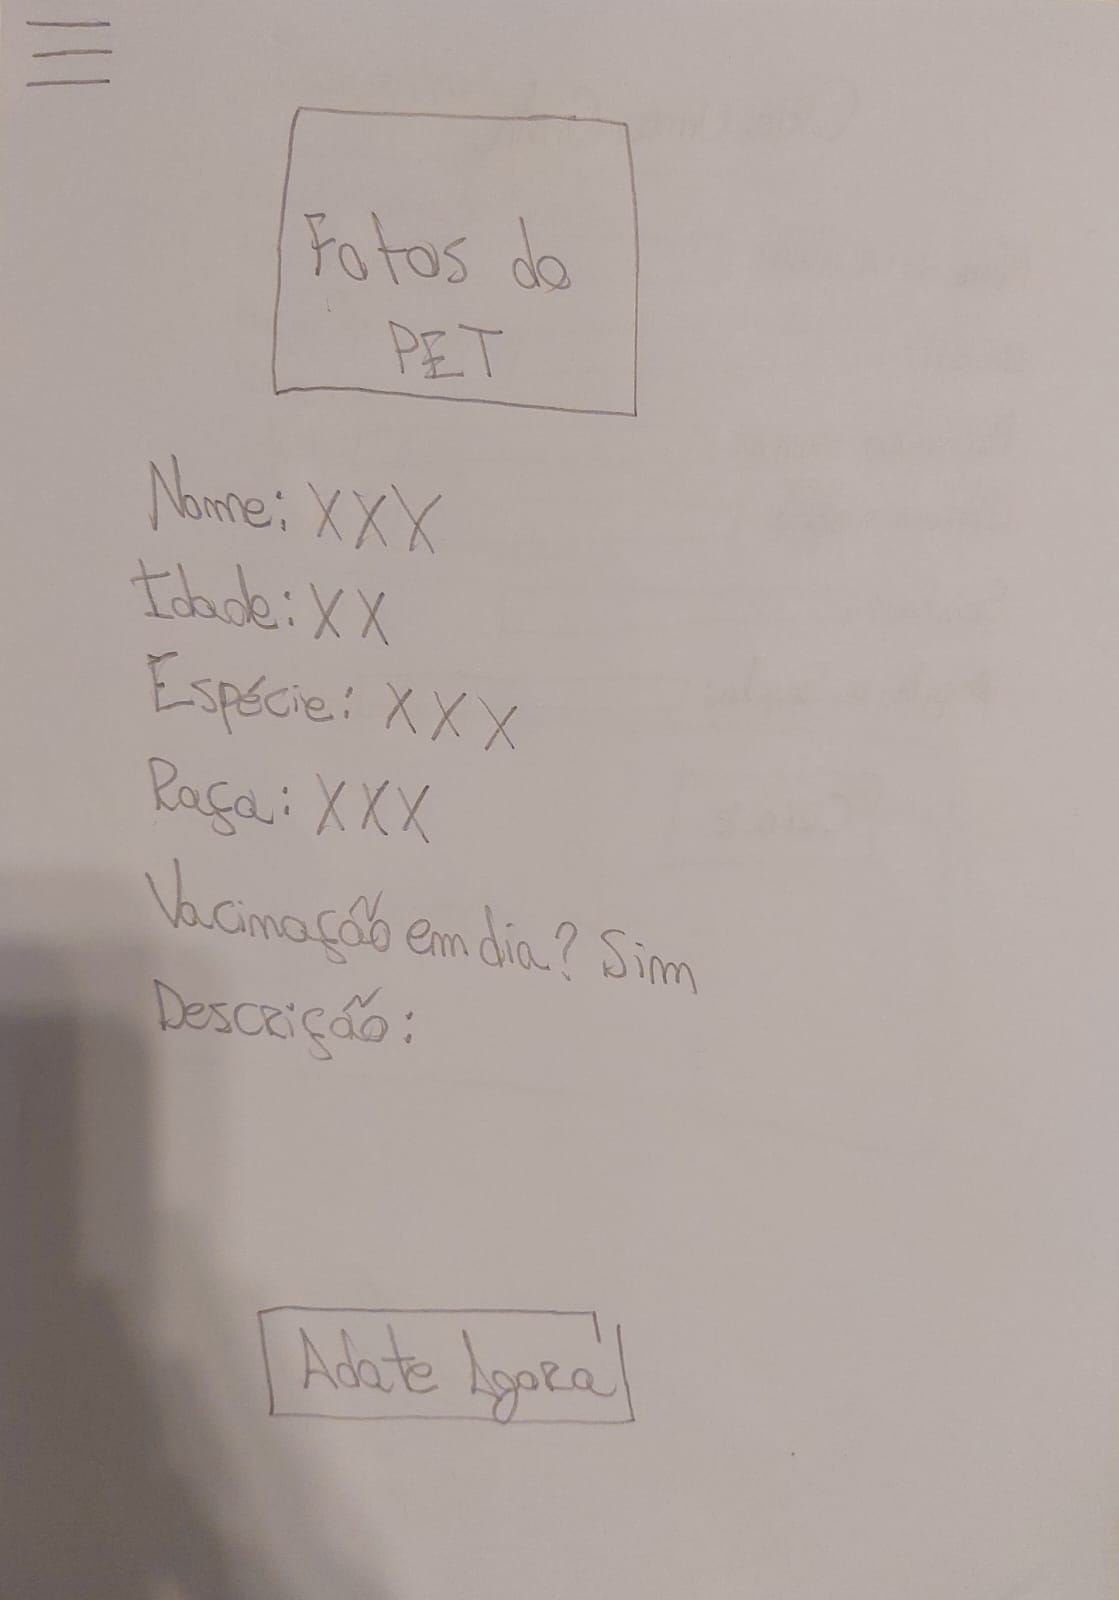 Fotos do
PET
Nome: XXX
Idade: XX
Espécie: XXX
Raça: XXX
Vacinação em dia? Sim
Descrição:
Adote Agora